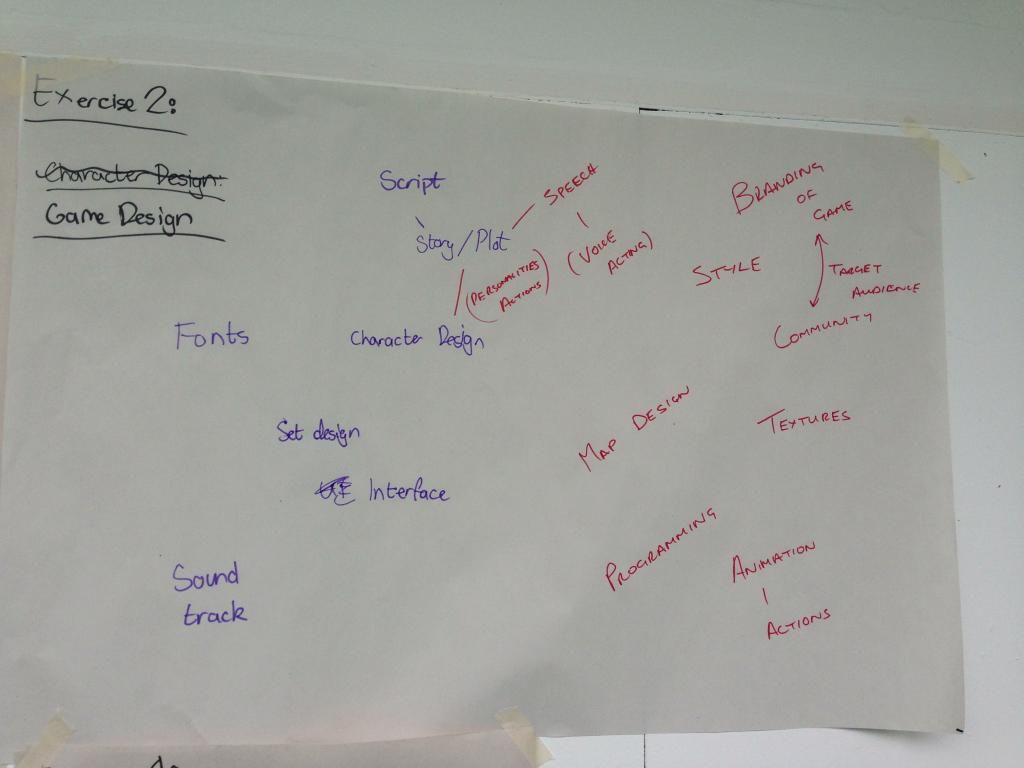 Exercise 2:
Character Design:
Game Design
Script
Story / Plot
SPEECH
(VOICE
ACTING)
(PERSONALITIES
ACTIONS)
Character Design
Fonts
Set design
Interface
Sound
track
BRANDING
OF
GAME
TARGET
AUDIENCE
COMMUNITY
STYLE
MAP DESIGN
TEXTURES
PROGRAMMING
ANIMATION
ACTIONS